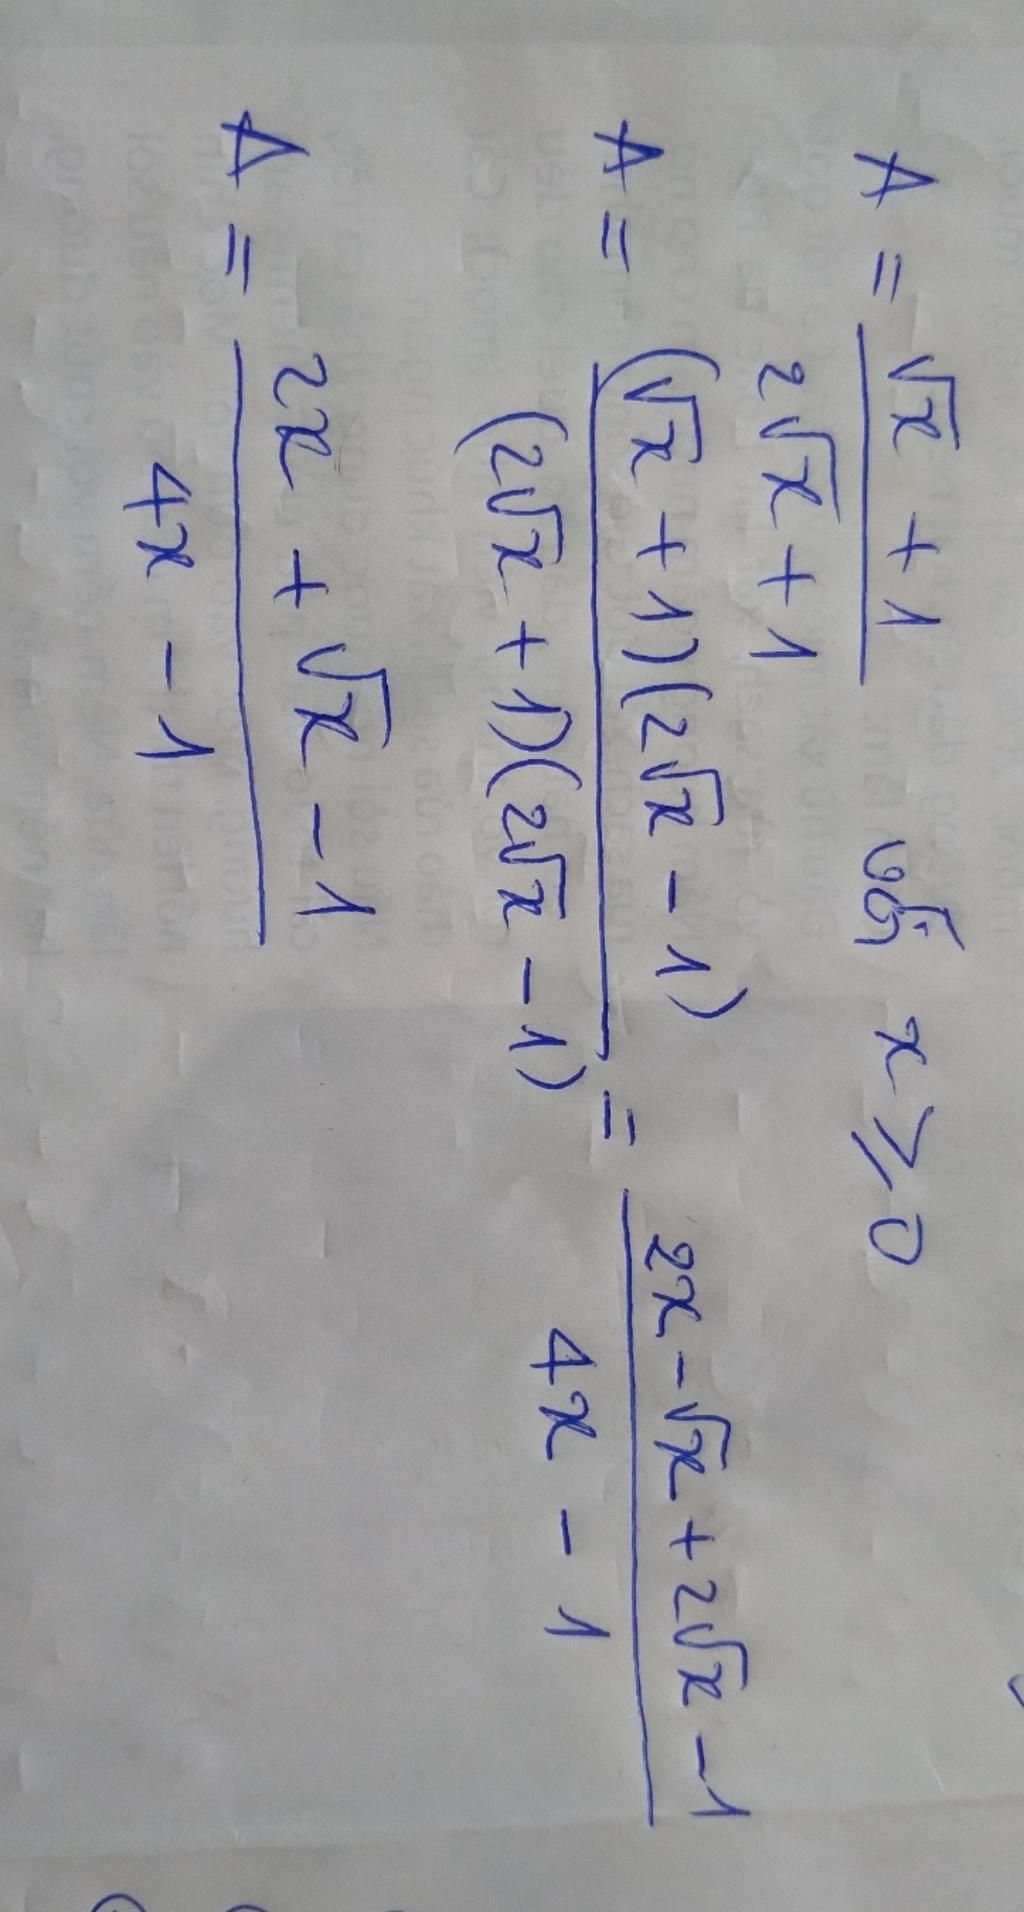 A = (√x + 1)/(2√x + 1) với x ≥ 0
A = ((√x + 1)(2√x - 1))/((2√x + 1)(2√x - 1)) = (2x - √x + 2√x - 1)/(4x - 1)
A = (2x + √x - 1)/(4x - 1)